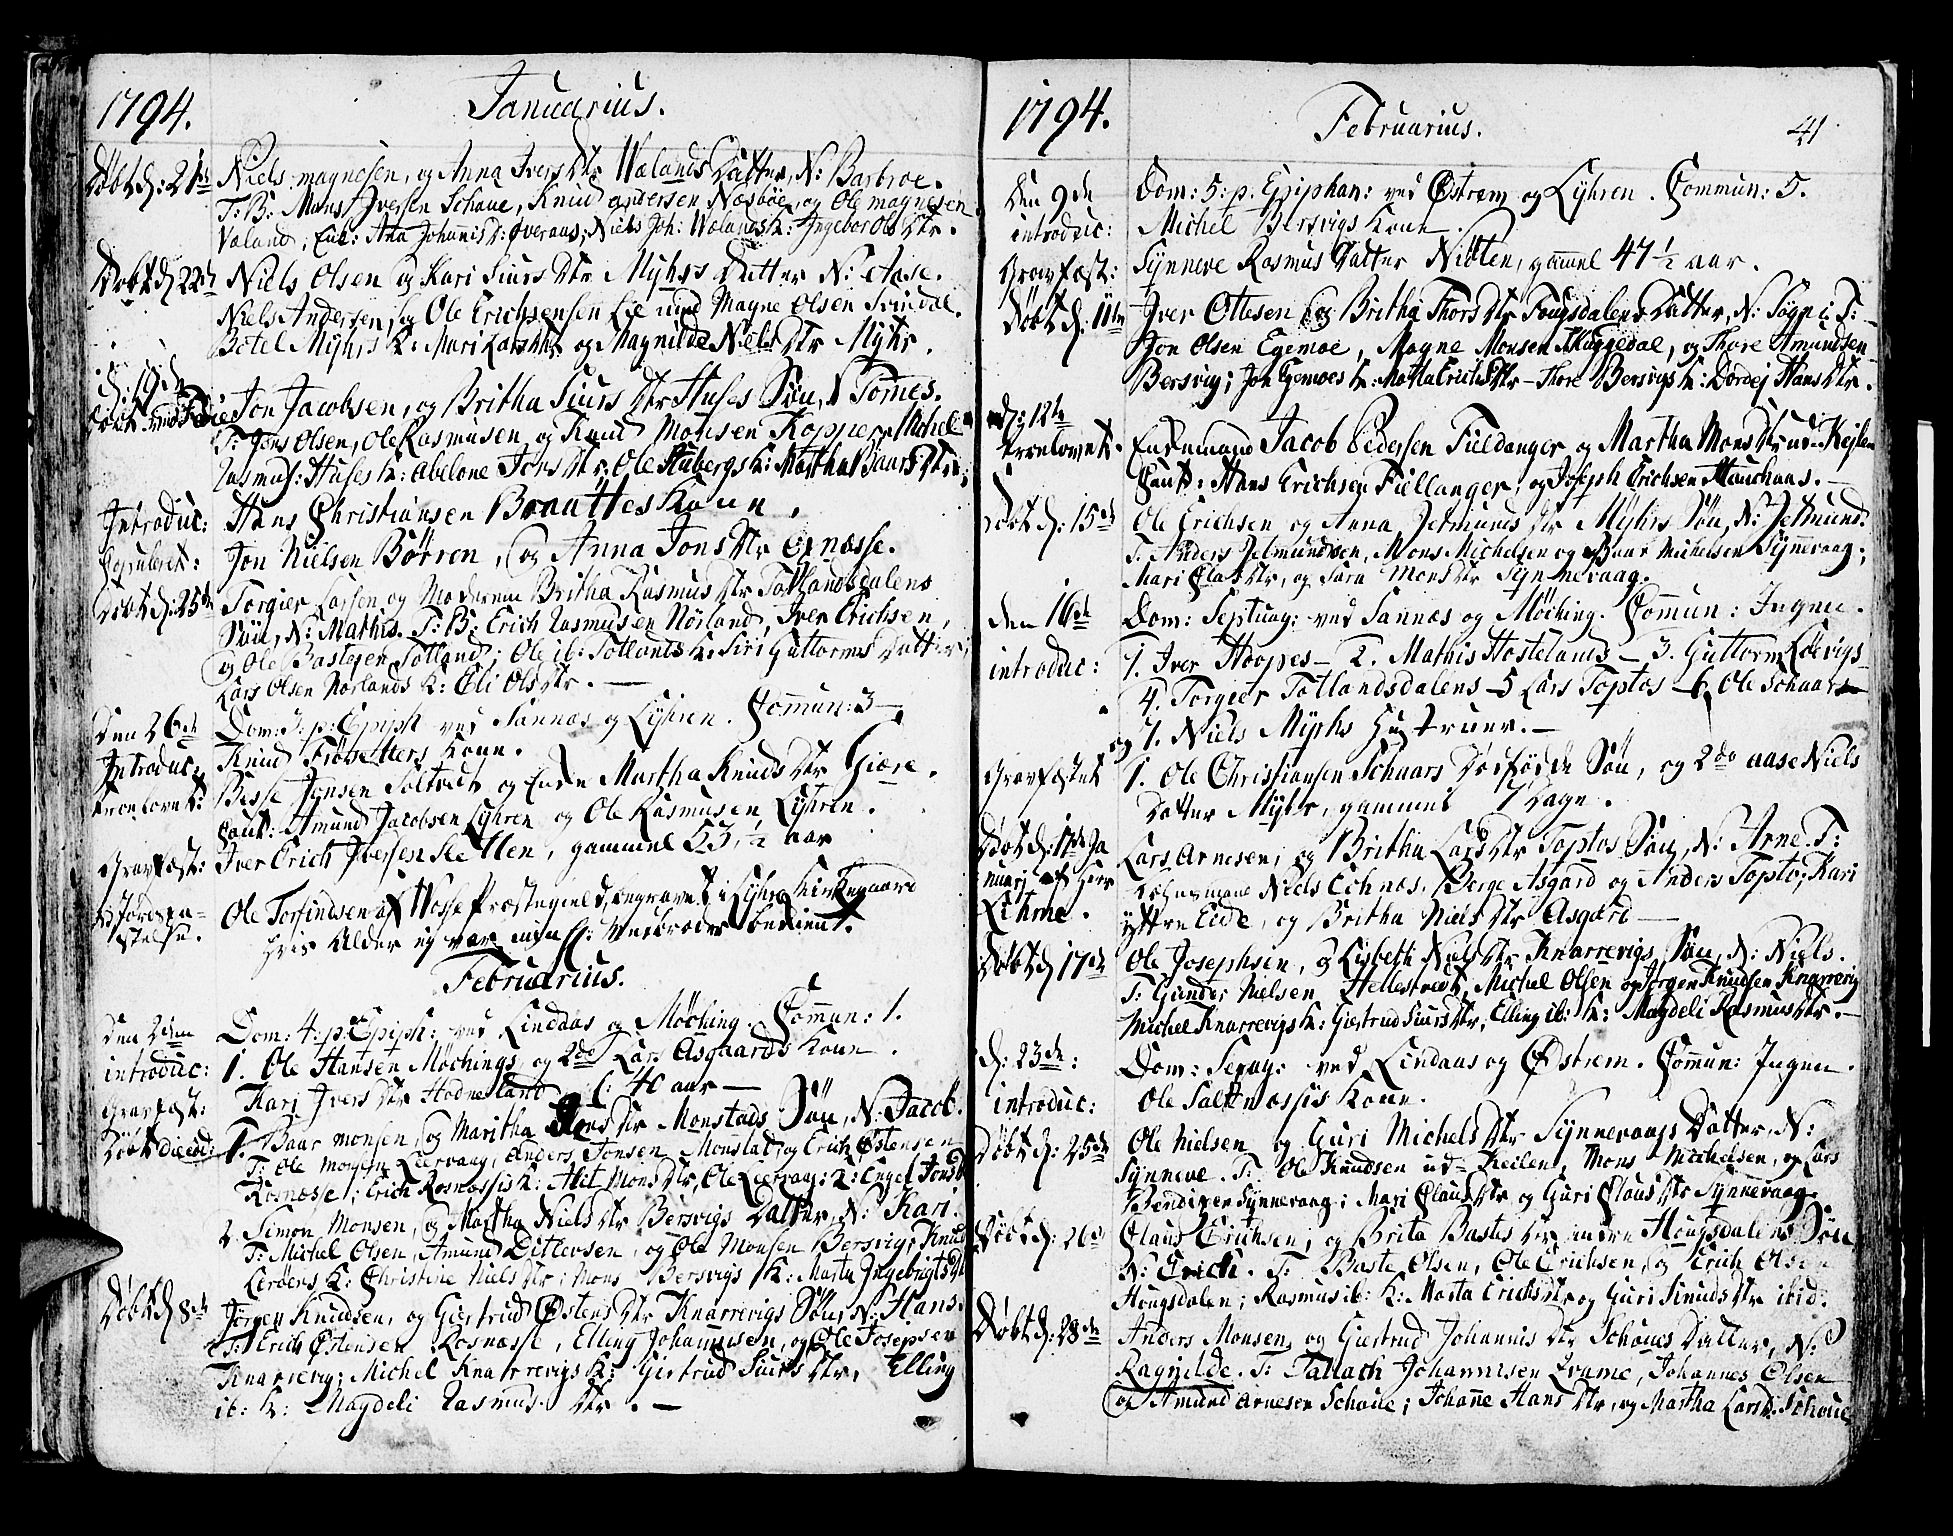 1794. Januarius.
Döbt d: 21de Niels magnesen, og Anna Ivers Dtr Wælands Datter, N: Barbroe.
T: B: Mons Iversen Schaue, Knud andersen Næsböe, og Ole magnesen
Væland; Ana Johannis Overaas; Niels Joh: Wælands K: Ingebor Ols Dtr.
Döbt d 22de Niels Olsen og Kari Siurs Dtr Myhrs Datter N: Aase.
Niels Andersen, og Ole Erichsen Lie Magne Olsen Svindal.
Botel Myhrs K: Mari Lars Dtr og Magnilde Niels Dtr Myhr.
d: 19de
Döbt Jon Jacobsen, og Britha Siurs Dtr Huses Sön, N Tornes.
T: Jens Olsen, Ole Rasmusen og Knud Monsen Michel
Rasmus: Huses K: Abelone Jons Dtr; Ole K: Martha Baars Dtr;
Introduc: Hans Christiansen Braattes Kone.
Copuleret: Jon Nielsen Börren, og Anna Jons Dtr
Döbt d: 25de Torgier Larsen og Moderen Britha Rasmus Dtr Totlandsdalens
Sön, N: Mathis. T: B: Erich Rasmusen Nörland, Iver Erichsen,
og Ole Bastesen Totland; Ole ib: Totlands K: Siri Guttorms Datter;
Lars Olsen Nörlands K: Eli Ols Dtr. —
Den 26de Dom: 3. p: Epiph: ved Sannæs og Lyhren. Commun: 3 —
Introduc: Knud Kone.
Trolovet: Besse Jensen Soltvedt og Martha Knuds Dtr Giære.
Caut: Amund Jacobsen Lyhren og Ole Rasmusen Lyhren.
Gravfæst: Iver Erich Iversen Sletten, gammel 53 1/2 aar
Ole Torfindsen af Wosse Præstegield, begravet i Lyhre Kirkegaard
hvis Alder ej var
Februarius.
Den 2den Dom: 4: p: Epiph: ved Lindaas og Möching. Commun: 1.
introduc: 1. Ole Hansen Möchings, og 2do Lars Asgaards Kone.
Gravfæst: Kari Ivers Dtr Hodneland 40 aar —
Döbt die eod: 1. Baar monsen, og Maritha Dtr Monstads Sön, N: Jacob.
T: Ole monsen Leervaag, Anders Jonsen Monstad, og Erich Östensen
Rosnæsse; Erich Rosnæssis K: Alet Mons Dtr, Ole Leervaag: K: Engel Jons D
2 Simon Monsen, og Martha Niels Dtr Bersvigs Datter, N: Kari.
T: Michel Olsen, Amund Ditlevsen, og Ole Monsen Bersvig; Knud
K: Christine Niels Dtr; Mons Bersvigs K: Marta Ingebrigts D
Döbt d 8de Jörgen Knudsen, og Giertrud Östens Dtr Knarrevigs Sön, N: Hans.
T: Erich Östensen Rosnæsse, Elling Johannesen, og Ole Josepsen
Knarrevig; Michel Knarrevigs K: Giertrud Siurs Dtr, Elling
ib: K: Magdeli Rasmus Dtr. —
1794. Februarius. 41
Den 9de Dom: 5: p. Epiphan: ved Östrem og Lyhren. Commun: 5.
introduc: Michel Bersvigs Kone.
Gravfæst: Synneve Rasmus Datter Nióten, gammel 47 1/2 aar.
Döbt d: 11te Iver Ottesen og Britha Thors Dtr Fougsdalens Datter, N: Sygni T:
Jon Olsen Egemoe, Magne Monsen Skuggedal, og Thore Amundsen
Bersvig; Jon Egemoes K: Marta Erichs Dtr — Thore Bersvigs K: Dordej Hans Dtr.
d: 12te
Troelovet. Enkemand Jacob Pedersen Fieldanger og Martha Mons Dtr
Caut: Hans Erichsen Fiellanger, og Joseph Erichsen —
Döbt d: 15de Ole Erichsen og Anna Jetmunds Dtr Myhrs Sön, N: Jetmund.
T: Anders Jetmundsen, Mons Michelsen og Baar Michelsen Synnevaag;
Mari Clas Dtr, og Sara Mons Dtr Synnevaag.
den 16de Dom: Septuag: ved Sannæs og Möching. Commun: Ingen.
introduc: 1. Iver Hoopes — 2. Mathis Hostelands — 3. Guttorm
4. Torgier Totlandsdalens — 5 Lars Toptos — 6. Ole Schaars
og 7. Niels Myhs Hustruer. —
Gravfæstet 1. Ole Christiansen Schaars Dödfödde Sön, og 2do aase Niels
Datter Myhr, gammel 7 Dage.
Döbt d: 17de Ja
nuarj af Herr
Lihme. Lars Arnesen, og Britha Lars Dtr Toptos Sön, N: Arne. T:
Niels Echnæs, Berge Asgard og Anders Topto; Kari
yttre Eide, og Britha Niels Dtr Asgard —
Döbt d 17de Ole Josephsen, og Lisbeth Niels Dtr Knarrevigs Sön, N: Niels.
T: Gunder Nielsen Hellestvedt, Michel Olsen og Jörgen Knudsen Knarrevig
Michel Knarrevigs K: Giertrud Siurs Dtr, Elling ib: K: Magdeli Rasmus Dtr. —
d: 23de: Dom: Sexag: ved Lindaas og Östrem. Commun: Ingen.
introduc: Ole Saltnæssis Kone.
Döbt d: 25de Ole Nielsen og Guri Michels Dtr Synnevaags Datter, N:
Synneve. T: Ole Knudsen ud= Keilen, Mons Michelsen, og Lars
Bendixen Synnevaag; Mari Claus Dtr og Guri Claus Dtr Synnevaag.
Döbt d: 26de Claus Erichsen, og Brita Bastes Dtr indre Hougsdalens Sön
N: Erich. T: Baste Olsen, Ole Erichsen, og Erich Olsen
Hougsdalen; Rasmus ib: K: Marta Erichs Dtr og Guri Knuds Dtr ibid:
Döbt d: 28de Anders Monsen og Giertrud Johannis Dtr Schoues Datter, N:
Ragnilde. T: Tallach Johannesen Johannes Olsen
og Amund Arnesen Schoue; Johanne Hans Dtr, og Martha Lars D: Schoue